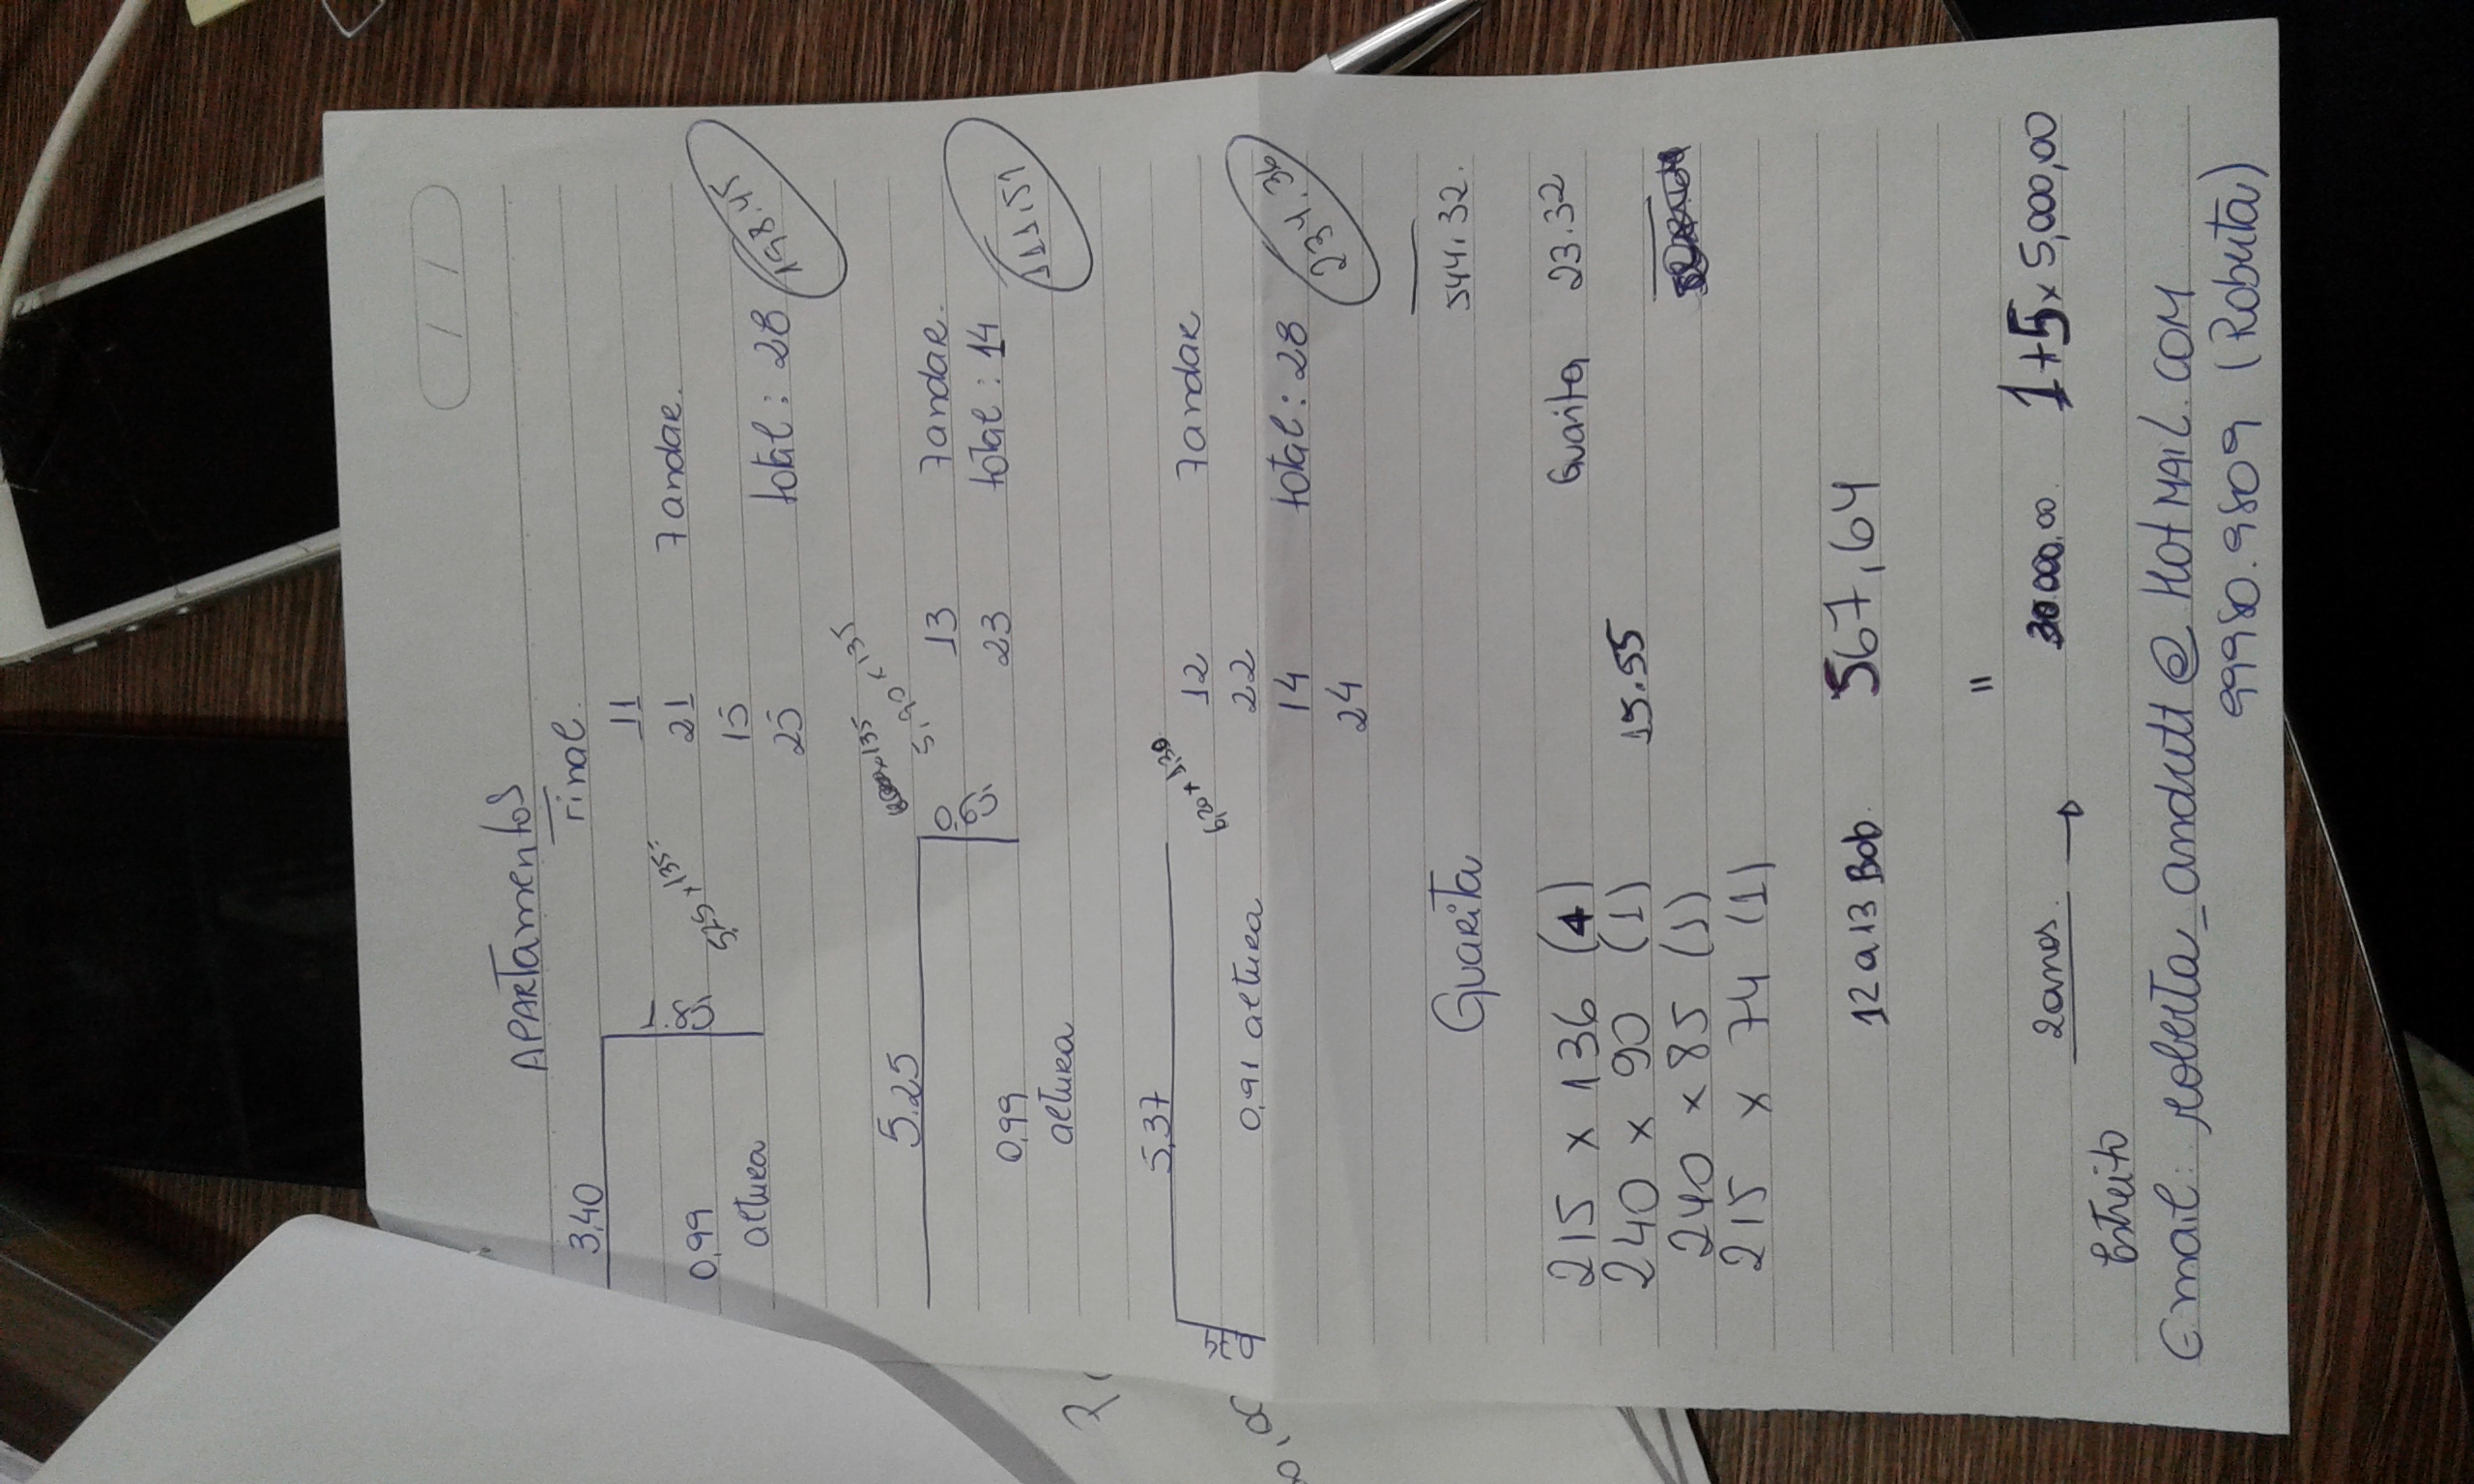 APARTamentos
Final
3,40
11
21 7 andar.
15
25 total: 28 198.45
0,99
altura
5,25+135
5.25
5,90+135
13 7 andar.
23 total: 14 111.51
0,99
altura
5,37
6,20+1,39
12 7 andar
22
14 total: 28 234.36
24
0,91 altura
544.32.
Guarita
215 x 136 (4) Guarita 23.32
240 x 90 (1) 15.55
240 x 85 (1)
215 x 74 (1)
12 a 13 Bob. 567,64
"
2 anos. → 30.000,00. 1+5x 5,000,00
Estreito
Email: roberta_andutt@HotMail.COM
9980.9809 (Roberta)